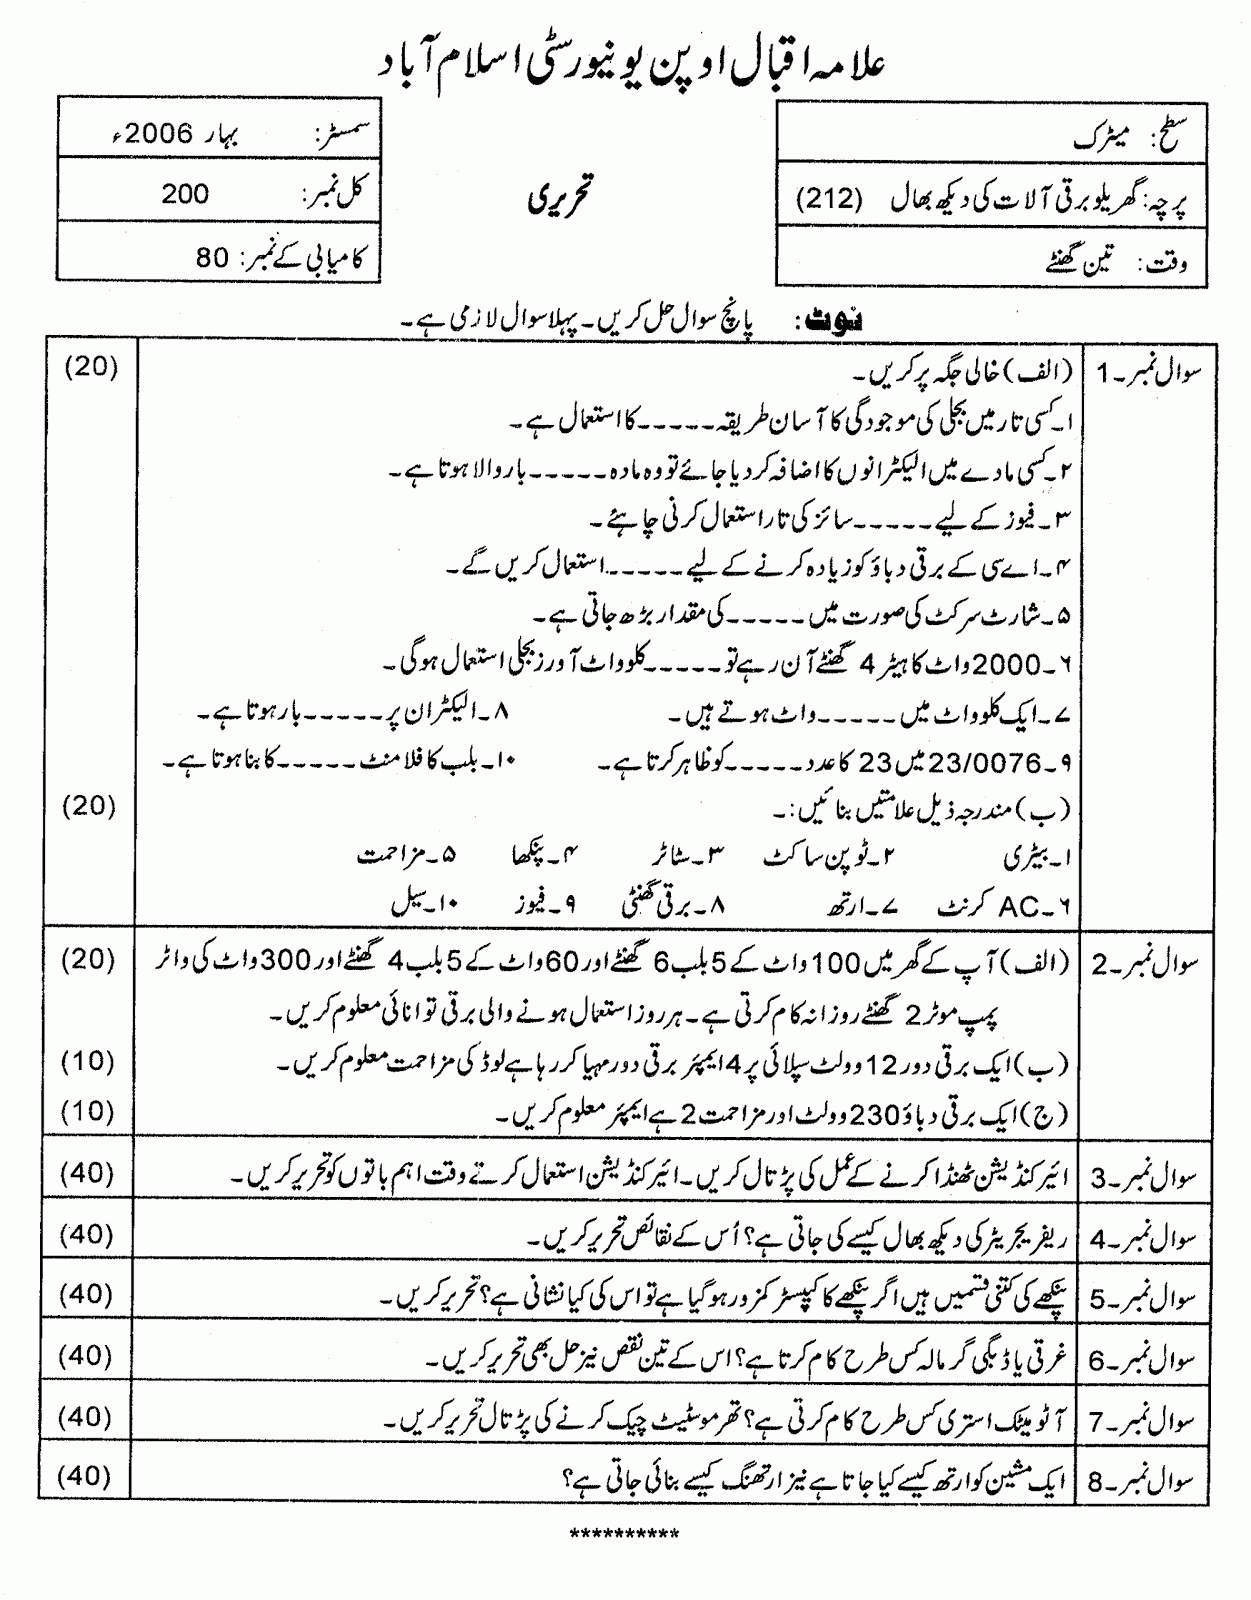 علامہ اقبال اوپن یونیورسٹی اسلام آباد
سطح: میٹرک
پرچہ: گھریلو برقی آلات کی دیکھ بھال (212)
وقت: تین گھنٹے
تحریری
سمسٹر: بہار 2006ء
کل نمبر: 200
کامیابی کے نمبر: 80
نوٹ: پانچ سوال حل کریں۔ پہلا سوال لازمی ہے۔
سوال نمبر۔1 (الف) خالی جگہ پر کریں۔ (20)
۱۔کسی تار میں بجلی کی موجودگی کا آسان طریقہ۔۔۔۔۔کا استعمال ہے۔
۲۔کسی مادے میں الیکٹرانوں کا اضافہ کر دیا جائے تو وہ مادہ۔۔۔۔۔بار والا ہوتا ہے۔
۳۔فیوز کے لیے۔۔۔۔۔سائز کی تار استعمال کرنی چاہئے۔
۴۔اے سی کے برقی دباؤ کو زیادہ کرنے کے لیے۔۔۔۔۔استعمال کریں گے۔
۵۔شارٹ سرکٹ کی صورت میں۔۔۔۔۔کی مقدار بڑھ جاتی ہے۔
۶۔2000 واٹ کا ہیٹر 4 گھنٹے آن رہے تو۔۔۔۔۔کلو واٹ آورز بجلی استعمال ہوگی۔
۷۔ایک کلو واٹ میں۔۔۔۔۔واٹ ہوتے ہیں۔ ۸۔الیکٹران پر۔۔۔۔۔بار ہوتا ہے۔
۹۔23/0076 میں 23 کا عدد۔۔۔۔۔کو ظاہر کرتا ہے۔ ۱۰۔بلب کا فلامنٹ۔۔۔۔۔کا بنا ہوتا ہے۔
(ب) مندرجہ ذیل علامتیں بنائیں:۔ (20)
۱۔بیٹری ۲۔ٹو پن ساکٹ ۳۔سٹاٹر ۴۔پنکھا ۵۔مزاحمت
۶۔AC کرنٹ ۷۔ارتھ ۸۔برقی گھنٹی ۹۔فیوز ۱۰۔سیل
سوال نمبر۔2 (الف) آپ کے گھر میں 100 واٹ کے 5 بلب 6 گھنٹے اور 60 واٹ کے 5 بلب 4 گھنٹے اور 300 واٹ کی واٹر (20)
پمپ موٹر 2 گھنٹے روزانہ کام کرتی ہے۔ ہر روز استعمال ہونے والی برقی توانائی معلوم کریں۔
(ب) ایک برقی دور 12 وولٹ سپلائی پر 4 ایمپئر برقی دور مہیا کر رہا ہے لوڈ کی مزاحمت معلوم کریں۔ (10)
(ج) ایک برقی دباؤ 230 وولٹ اور مزاحمت 2 ہے ایمپئر معلوم کریں۔ (10)
سوال نمبر۔3 ائیر کنڈیشن ٹھنڈا کرنے کے عمل کی پڑتال کریں۔ ائیر کنڈیشن استعمال کرتے وقت اہم باتوں کو تحریر کریں۔ (40)
سوال نمبر۔4 ریفریجریٹر کی دیکھ بھال کیسے کی جاتی ہے؟ اُس کے نقائص تحریر کریں۔ (40)
سوال نمبر۔5 پنکھے کی کتنی قسمیں ہیں اگر پنکھے کا کپسٹر کمزور ہو گیا ہے تو اس کی کیا نشانی ہے؟ تحریر کریں۔ (40)
سوال نمبر۔6 غرقی یا ڈبگی گرمالہ کس طرح کام کرتا ہے؟ اس کے تین نقص نیز حل بھی تحریر کریں۔ (40)
سوال نمبر۔7 آٹومیٹک استری کس طرح کام کرتی ہے؟ تھرموسٹیٹ چیک کرنے کی پڑتال تحریر کریں۔ (40)
سوال نمبر۔8 ایک مشین کو ارتھ کیسے کیا جاتا ہے نیز ارتھنگ کیسے بنائی جاتی ہے؟ (40)
**********